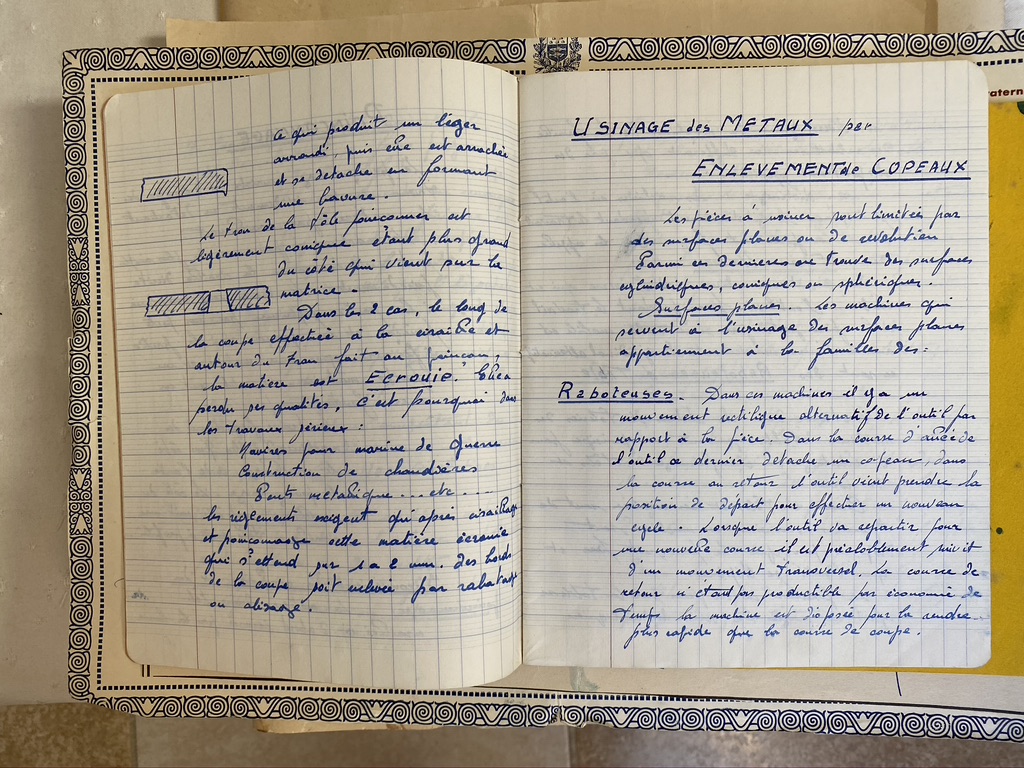 ce qui produit un léger
arrondi puis elle est arrachée
et se detache en formant
une bavure.
Le trou de la tôle poinconner est
légèrement conique étant plus grand
du côté qui vient sur la
matrice.
Dans les 2 cas, le long de
la coupe effectuée à la cisaille et
autour du trou fait au poincon,
la matière est ECROUIE. Elle a
perdu ses qualités, c'est pourquoi dans
les travaux sérieux :
Navires pour marine de Guerre
Construction de chaudières
Ponts métallique.... etc ....
les règlements exigent qu'après cisaillage
et poinconnage cette matière écrouie
qui s'etend sur 1 a 2 mm. des bords
de la coupe soit enlevée par rabotage
ou alésage.
USINAGE des METAUX par
ENLEVEMENT de COPEAUX
Les pièces à usiner sont limitées par
des surfaces planes ou de revolution
Parmi ces dernieres on trouve des surfaces
cylindriques, coniques ou sphériques.
Surfaces planes. Les machines qui
servent à l'usinage des surfaces planes
appartiennent à la familles des :
Raboteuses. Dans ces machines il y a un
mouvement rectiligne alternatif de l'outil par
rapport à la pièce. Dans la course d'
l'outil ce dernier détache un copeau, dans
la course au retour l'outil vient prendre la
position de départ pour effectuer un nouveau
cycle. Lorsque l'outil va repartir pour
une nouvelle course il est préalablement suivit
d'un mouvement transversal. La course de
retour n'étant pas productible par économie de
temps la machine est disposée pour la rendre
plus rapide que la course de coupe.
atern